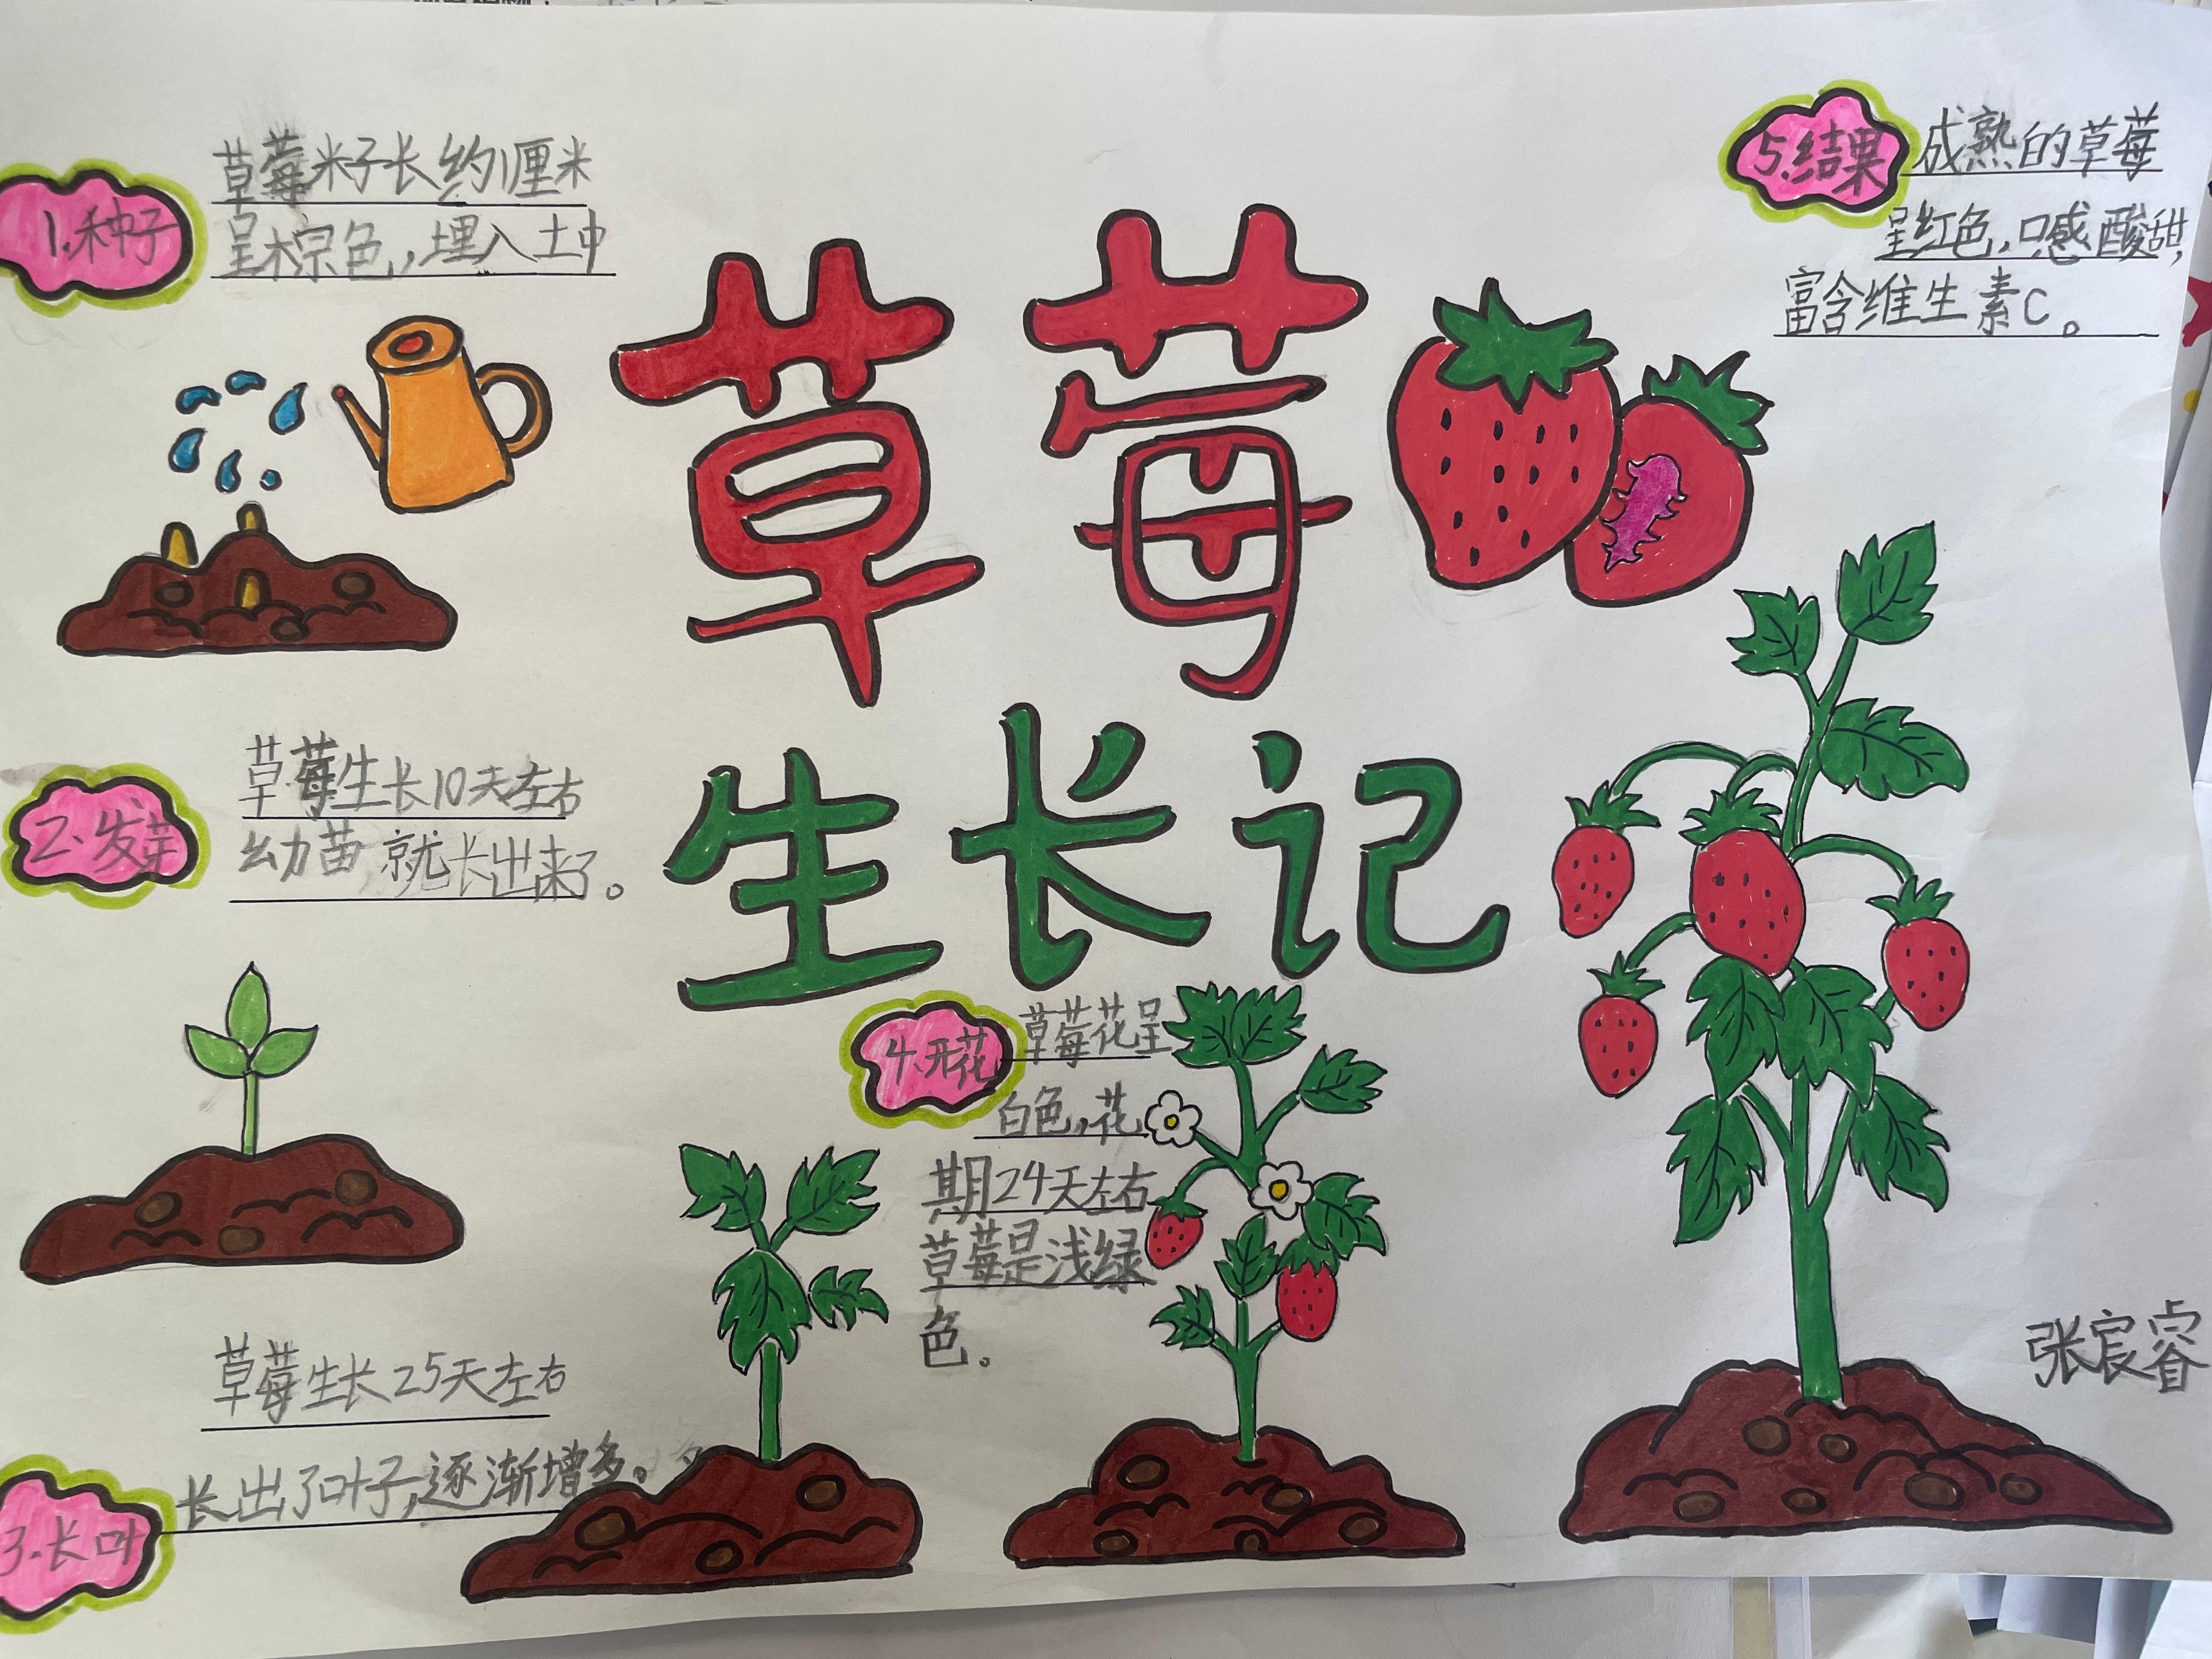 草莓
生长记
1.种子
草莓米子长约1厘米
呈棕色,埋入土中
2.发芽
草莓生长10天左右
幼苗就长出来了。
3.长叶
草莓生长25天左右
长出了叶子,逐渐增多。
4.开花
草莓花呈
白色,花
期24天左右
草莓是浅绿
色。
5.结果
成熟的草莓
呈红色,口感酸甜,
富含维生素C。
张宸睿